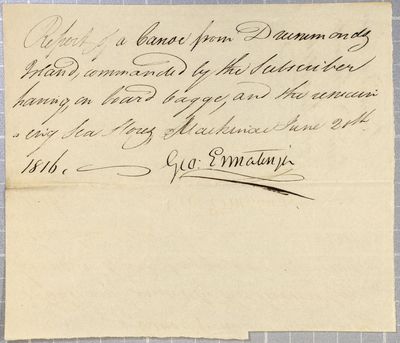 Report of a Canoe from Drummonds
Island, commanded by the Subscriber
having on board bagge, and the remain
ing Sea Stores Mackinac June 20th
1816.
Geo: Ermatinger